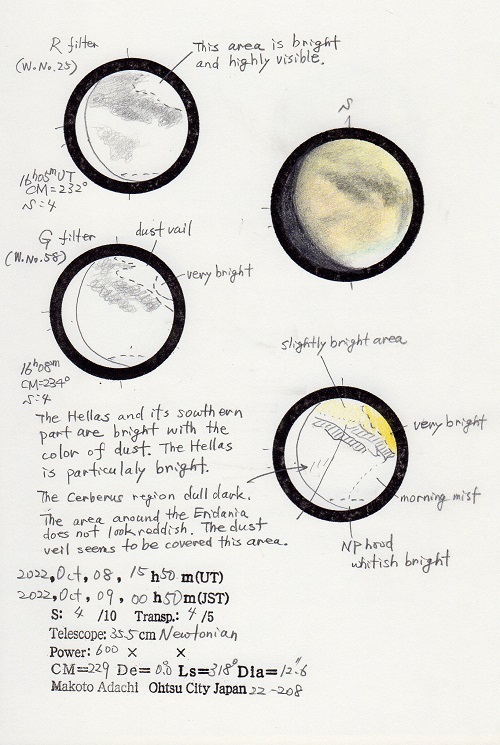 R filter
(W.No.25)
This area is bright
and highly visible.
16h05mUT
CM=232°
S=4
S
G filter
(W.No.58)
dust vail
very bright
16h08m
CM=234°
S=4
slightly bright area
very bright
morning mist
NP hood
whitish bright
The Hellas and it's southern
part are bright with the
color of dust. The Hellas
is particulaly bright.
The Cerberus region dull dark.
The area around the Eridania
does not look reddish. The dust
veil seems to be covered this area.
2022, Oct, 08, 15 h50 m(UT)
2022, Oct, 09, 00 h50 m(JST)
S: 4 /10 Transp.: 4 /5
Telescope: 35.5 cm Newtonian
Power: 600 × ×
CM=229 De=0.0 Ls=318° Dia=12".6
Makoto Adachi Ohtsu City Japan 22-208